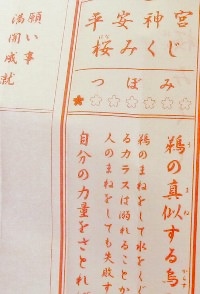 平安神宮
桜みくじ
つぼみ
★☆☆☆☆☆☆
鵜の真似する烏
う
まね
からす
鵜のまねをして水をくぐ
るカラスは溺れることか
人のまねをしても失敗す
自分の力量をさとれば
願い事
満開成就